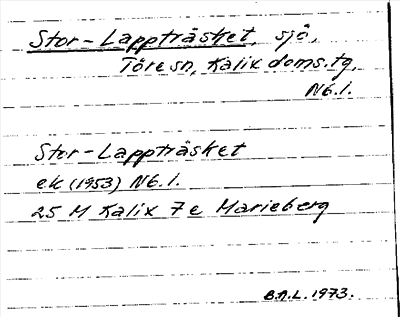 Stor-Lappträsket, sjö,
Töre sn, Kalix doms.tg,
Nb.l.
Stor-Lappträsket
ek (1953) Nb.l.
25 M Kalix 7e Marieberg
B.N.L. 1973.